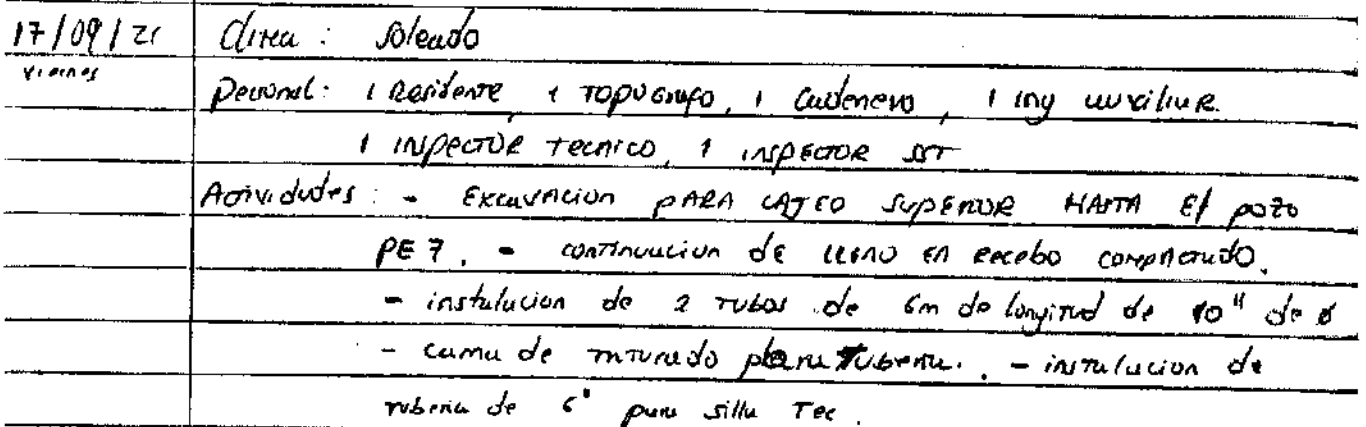 17/09/21 Clima : Soleado
viernes
Personal: 1 Residente, 1 TOPOGRAFO, 1 Cadenero, 1 ing auxiliar.
1 INSPECTOR TECNICO, 1 INSPECTOR SST
Actividades: - EXCAVACION PARA CAJEO SUPERIOR HASTA El pozo
PE 7. - continuacion de lleno en recebo compactado.
- instalacion de 2 TUBOS de 6m de longitud de 10" de ø
- cama de triturado para Tuberia. - instalacion de
tuberia de 6" para silla Tee.